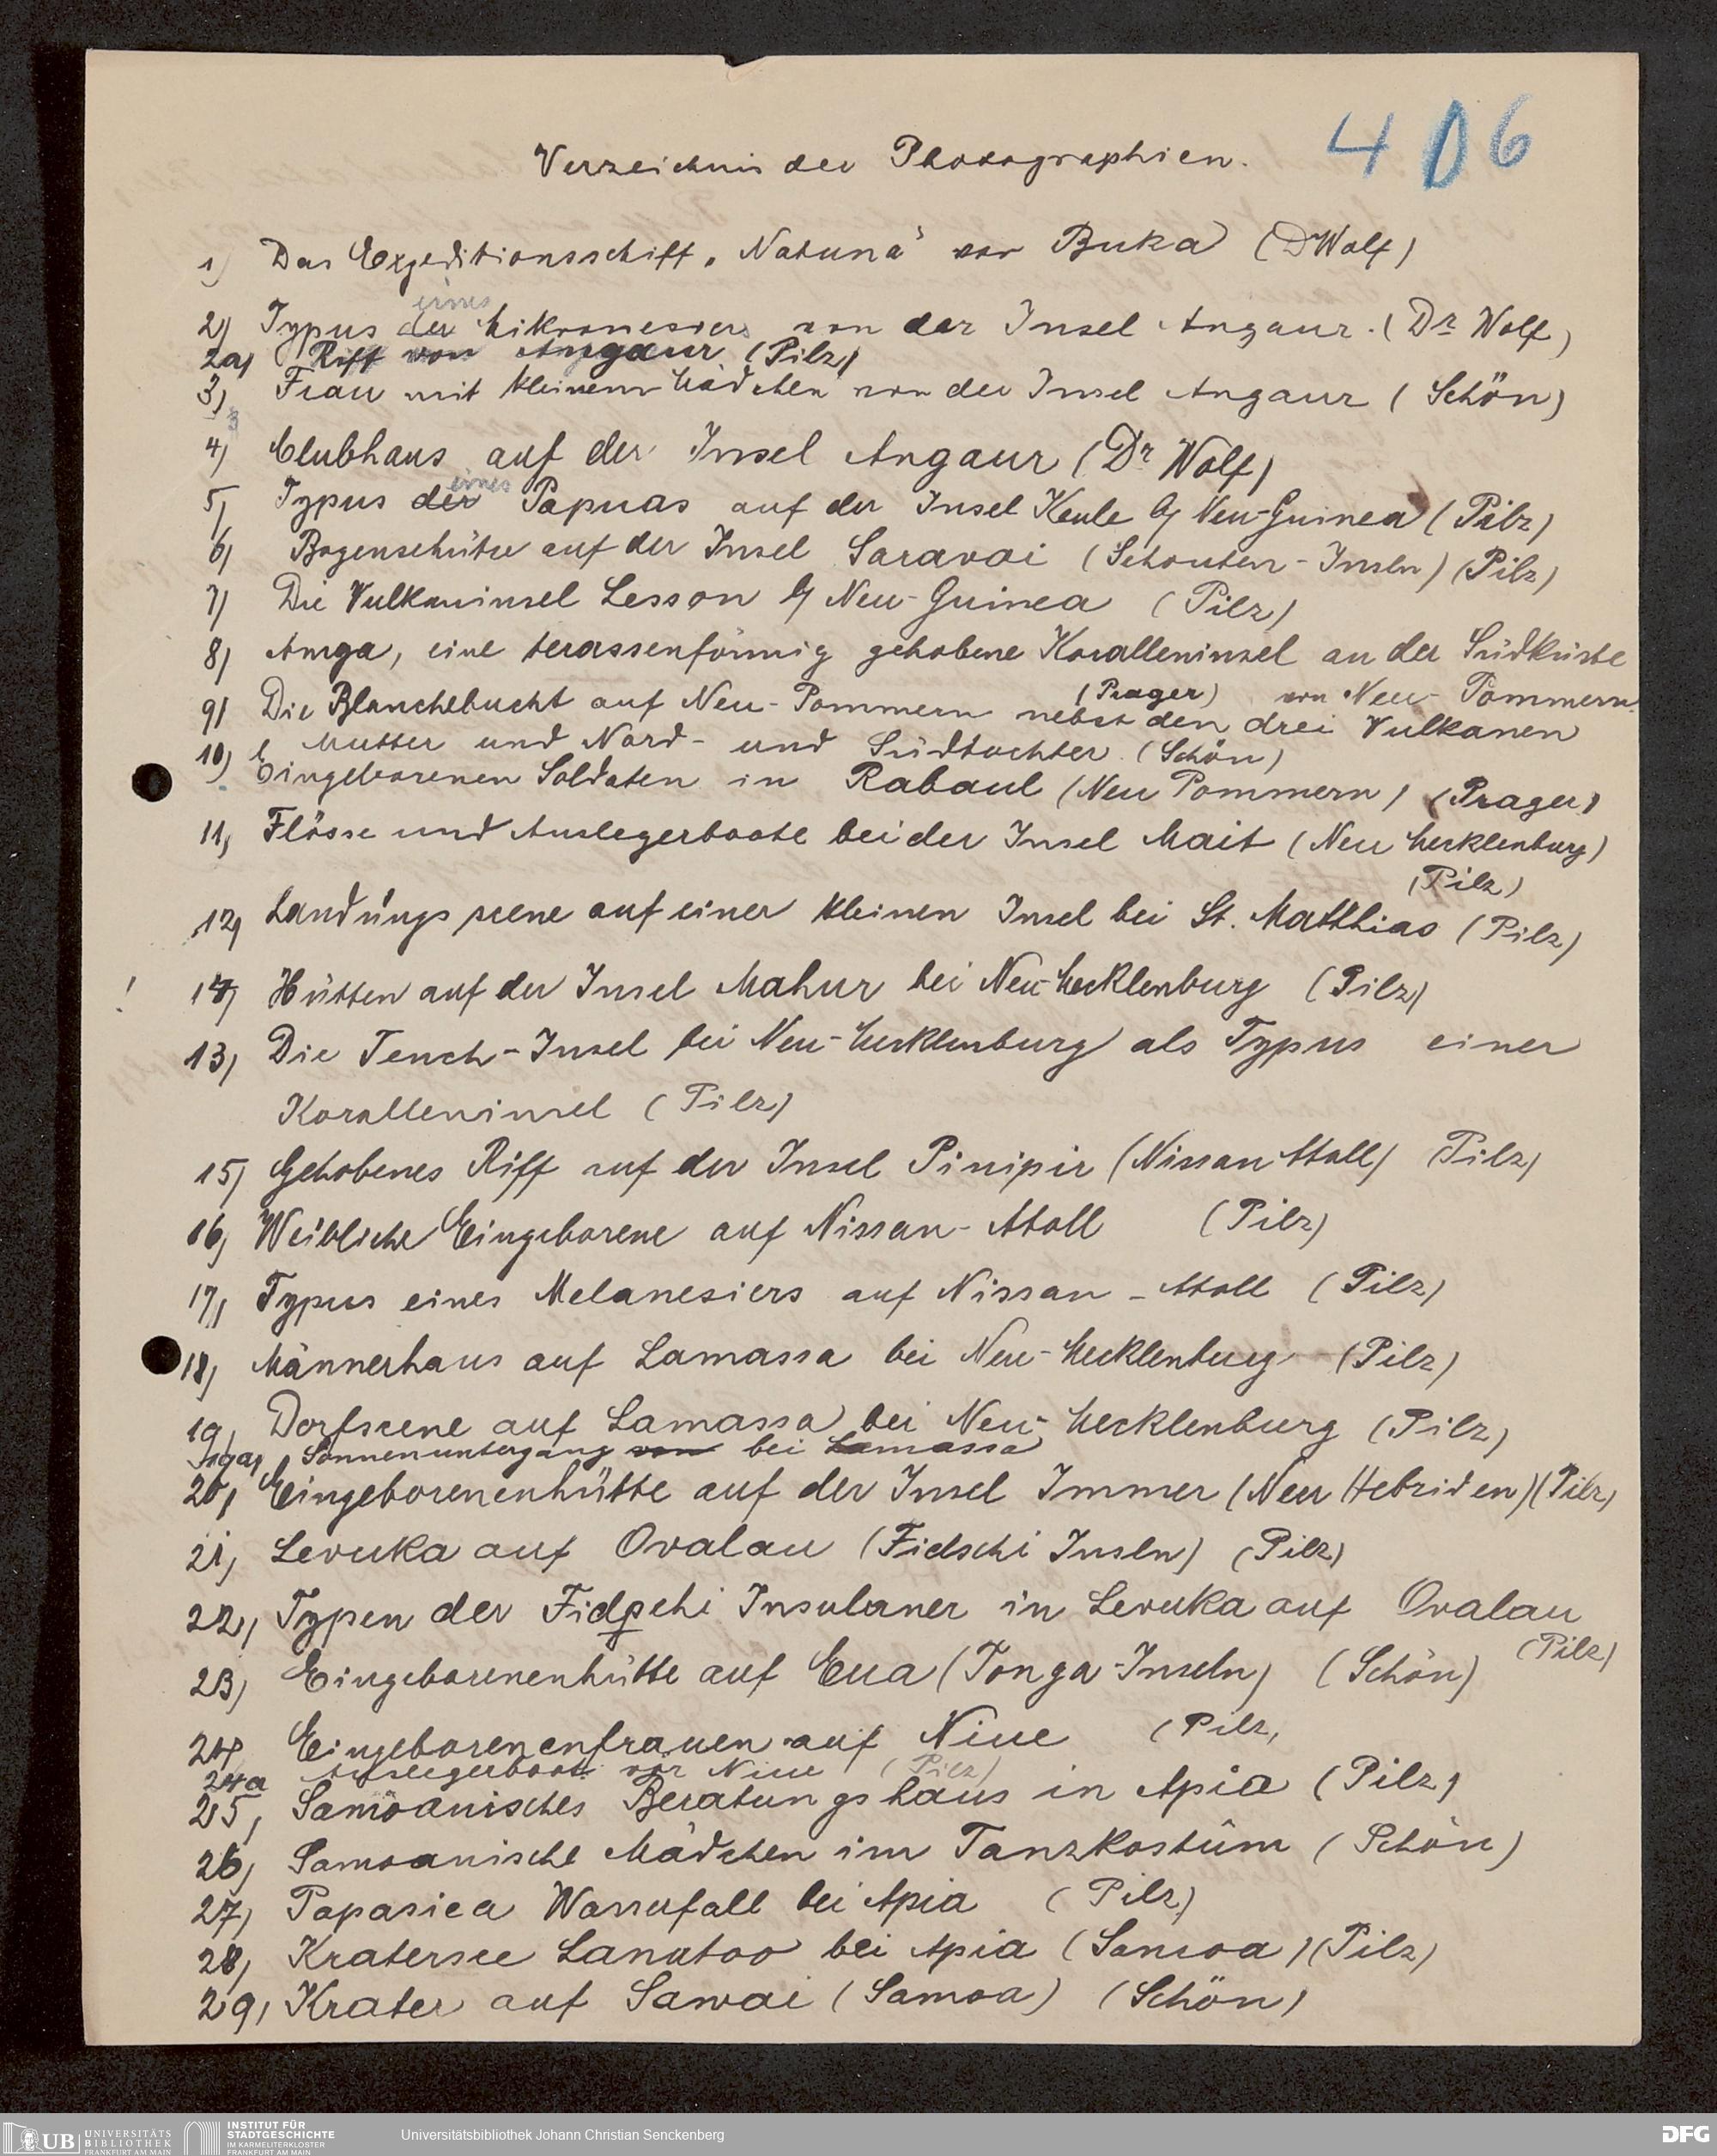 406
Verzeichnis der Photographien.
1) Das Expeditionsschiff „Natuna" vor Buka (Dr Wolf)
eines
2) Typus der Mikronesiers von der Insel Angaur. (Dr Wolf)
2a) Riff von Angaur (Pilz)
3) Frau mit kleinem Mädchen von der Insel Angaur (Schön)
3
4) Clubhaus auf der Insel Angaur (Dr Wolf)
eines
5) Typus der Papuas auf der Insel Keule b/ Neu-Guinea (Pilz)
6) Bogenschütze auf der Insel Saravai (Schouten-Inseln) (Pilz)
7) Die Vulkaninsel Lesson b/ Neu-Guinea (Pilz)
8) Amga, eine terassenförmig gehobene Koralleninsel an der Südküste
(Prager) von Neu-Pommern
9) Die Blanchebucht auf Neu-Pommern nebst den drei Vulkanen
Mutter und Nord- und Südtochter. (Schön)
10) Eingeborenen Soldaten in Rabaul (Neu Pommern) (Prager)
11) Flösse und Auslegerboote bei der Insel Mait (Neu Mecklenburg)
(Pilz)
12) Landungsscene auf einer kleinen Insel bei St. Matthias (Pilz)
! 14) Hütten auf der Insel Mahur bei Neu-Mecklenburg (Pilz)
13) Die Tench-Insel bei Neu-Mecklenburg als Typus einer
Koralleninsel (Pilz)
15) Gehobenes Riff auf der Insel Pinipir (Nissan Atoll) (Pilz)
16) Weibliche Eingeborene auf Nissan-Atoll (Pilz)
17) Typus eines Melanesiers auf Nissan-Atoll (Pilz)
18) Männerhaus auf Lamassa bei Neu-Mecklenburg (Pilz)
19) Dorfscene auf Lamassa bei Neu-Mecklenburg (Pilz)
19a) Sonnenuntergang von bei Lamassa
20) Eingeborenenhütte auf der Insel Immer (Neu Hebriden) (Pilz)
21) Levuka auf Ovalau (Fidschi Inseln) (Pilz)
22) Typen der Fidschi Insulaner in Levuka auf Ovalau
(Pilz)
23) Eingeborenenhütte auf Eua (Tonga-Inseln) (Schön)
24) Eingeborenenfrauen auf Niue (Pilz)
24a Auslegerboot vor Niue (Pilz)
25) Samoanisches Beratungshaus in Apia (Pilz)
26) Samoanische Mädchen im Tanzkostüm (Schön)
27) Papasiea Wasserfall bei Apia (Pilz)
28) Kratersee Lanutoo bei Apia (Samoa) (Pilz)
29) Krater auf Sawai (Samoa) (Schön)
UB UNIVERSITÄTS
BIBLIOTHEK
FRANKFURT AM MAIN
INSTITUT FÜR
STADTGESCHICHTE
IM KARMELITERKLOSTER
FRANKFURT AM MAIN
Universitätsbibliothek Johann Christian Senckenberg
DFG